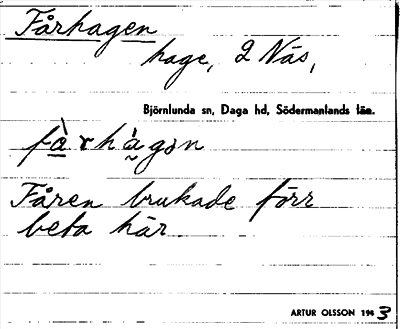 Fårhagen
hage, 2 Näs,
Björnlunda sn, Daga hd, Södermanlands län.
fà̱rhà̰gən
Fåren brukade förr
beta här.
ARTUR OLSSON 193